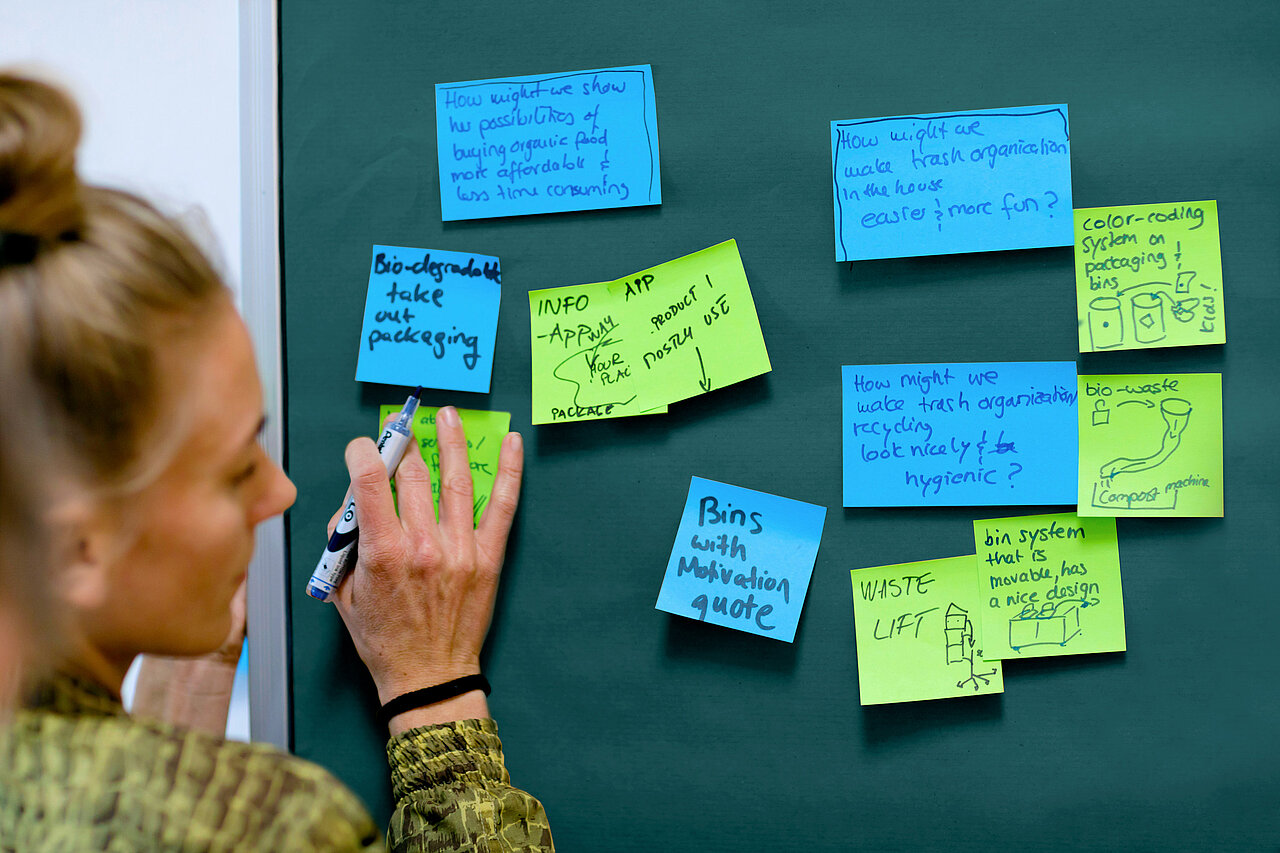 How might we show
her possibilities of
buying organic food
more affordable &
less time consuming
How might we
make trash organization
in the house
easier & more fun?
color-coding
system on
packaging &
bins
kids!
Bio-degradable
take
out
packaging
INFO
-APP
WHY
YOUR
PLAC
PACKAGE
APP
PRODUCT 1
MOSTLY USE
How might we
make trash organization
recycling
look nicely &
hygienic?
bio-waste
Compost machine
Bins
with
Motivation
quote
WASTE
LIFT
bin system
that is
movable, has
a nice design